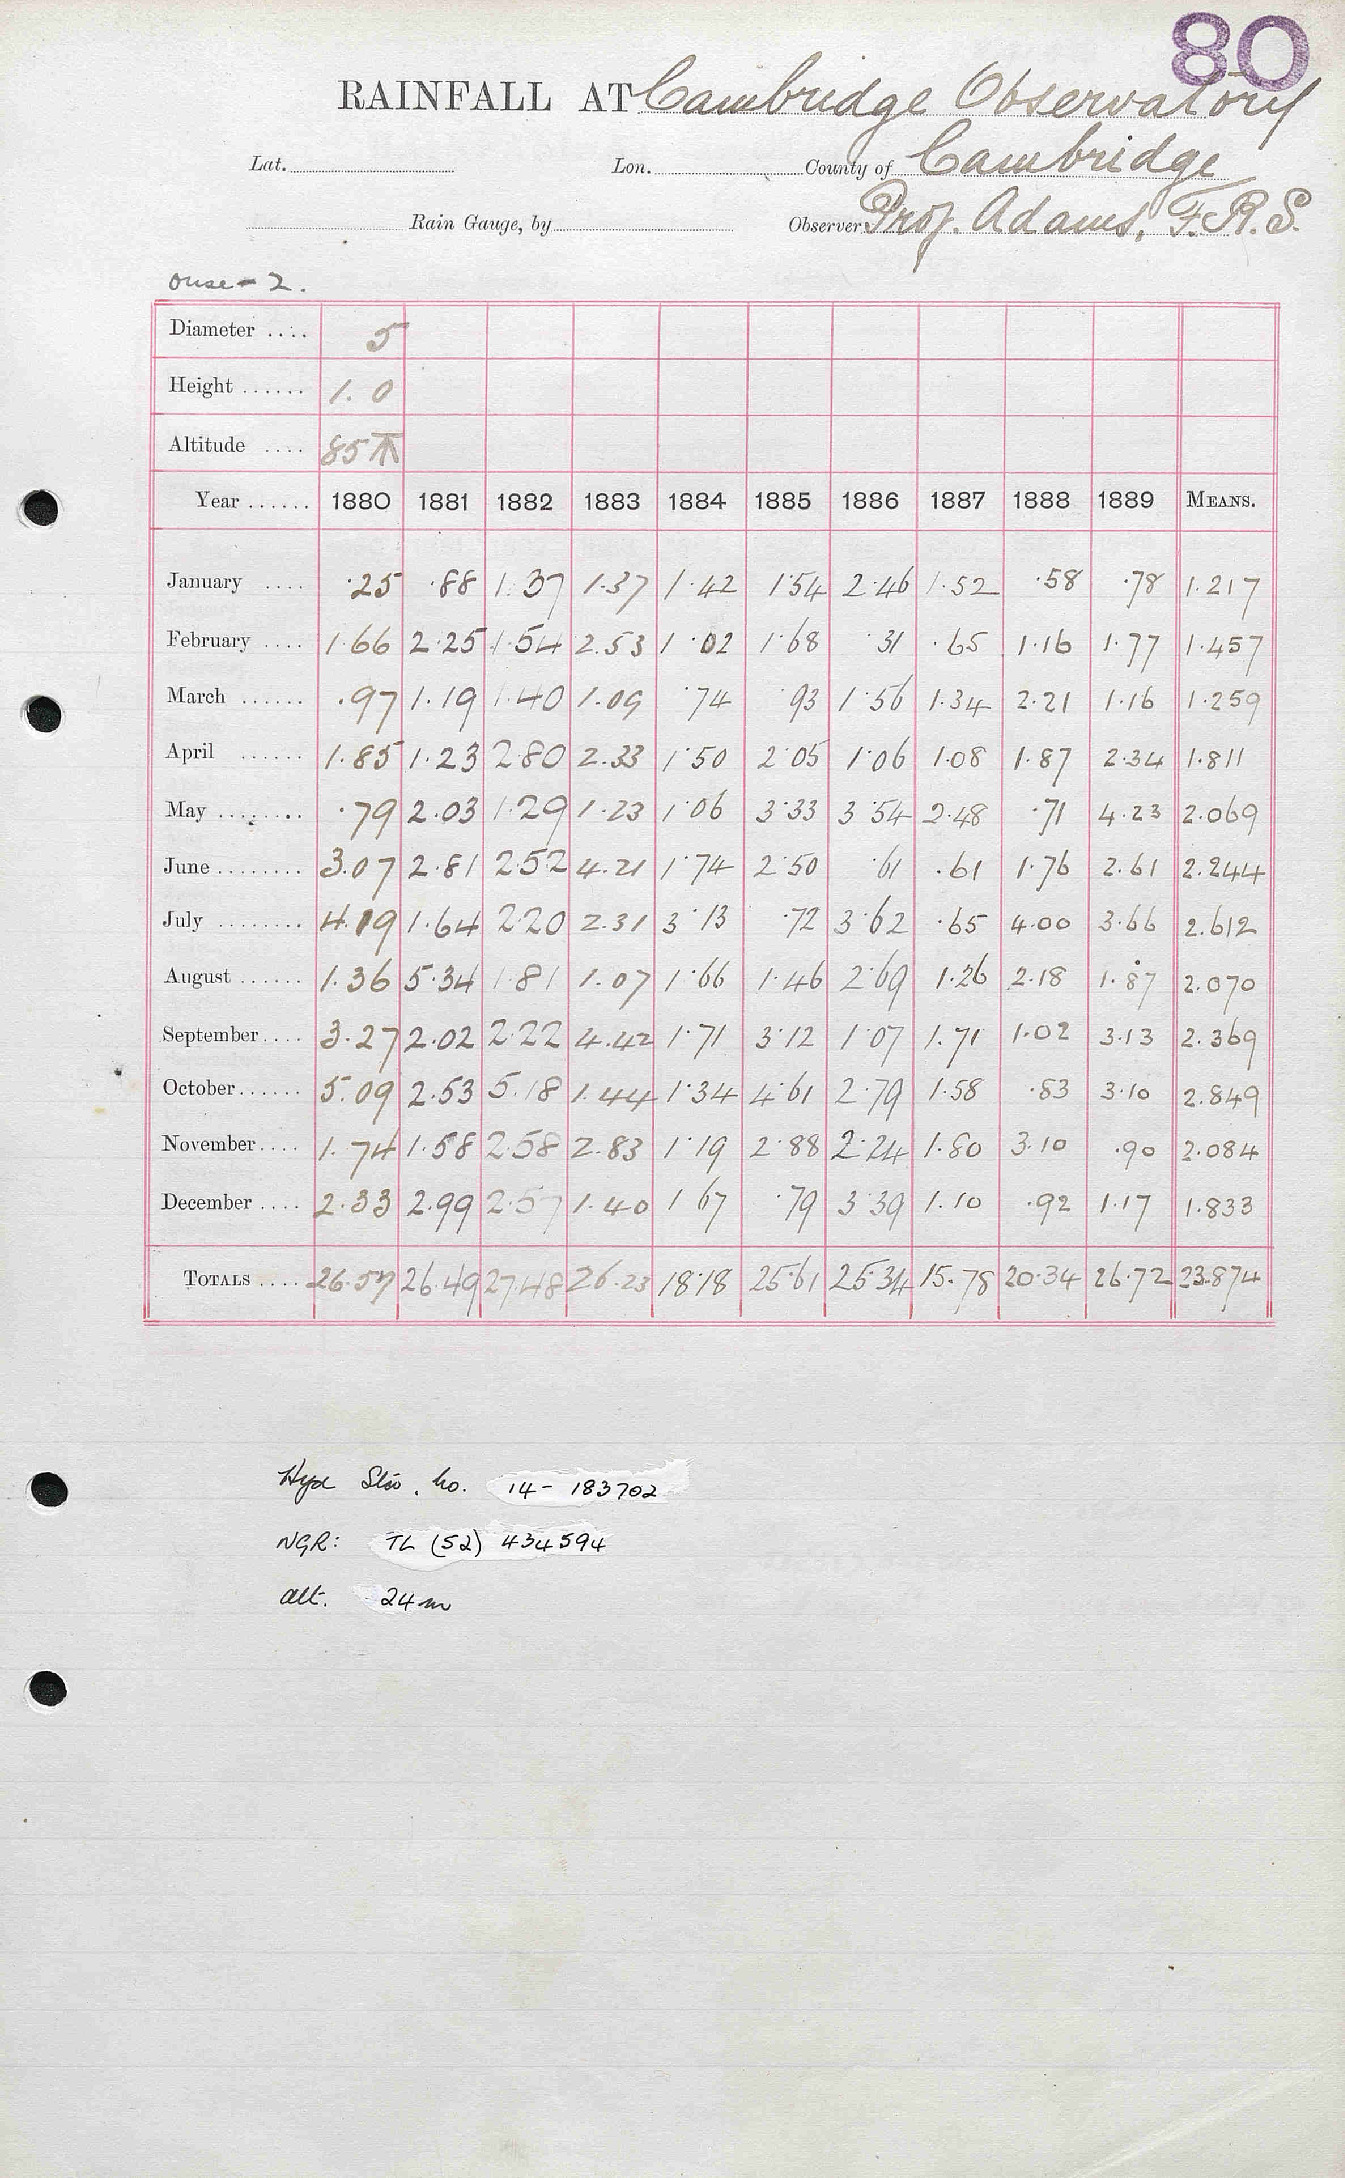 80
RAINFALL AT Cambridge Observatory
Lat. Lon. County of Cambridge
Rain Gauge, by Observer Prof. Adams, F.R.S.
Ouse - 2.
Diameter .... 5
Height ...... 1.0
Altitude .... 85
Year ...... 1880 1881 1882 1883 1884 1885 1886 1887 1888 1889 MEANS.
January .... .25 .88 1.37 1.37 1.42 1.54 2.46 1.52 .58 .78 1.217
February .... 1.66 2.25 1.54 2.53 1.02 1.68 .31 .65 1.16 1.77 1.457
March ...... .97 1.19 1.40 1.09 .74 .93 1.56 1.34 2.21 1.16 1.259
April ...... 1.85 1.23 2.80 2.33 1.50 2.05 1.06 1.08 1.87 2.34 1.811
May ........ .79 2.03 1.29 1.23 1.06 3.33 3.54 2.48 .71 4.23 2.069
June ........ 3.07 2.81 2.52 4.21 1.74 2.50 .61 .61 1.76 2.61 2.244
July ........ 4.19 1.64 2.20 2.31 3.13 .72 3.62 .65 4.00 3.66 2.612
August ...... 1.36 5.34 1.81 1.07 1.66 1.46 2.69 1.26 2.18 1.87 2.070
September .... 3.27 2.02 2.22 4.42 1.71 3.12 1.07 1.71 1.02 3.13 2.369
October ...... 5.09 2.53 5.18 1.44 1.34 4.61 2.79 1.58 .83 3.10 2.849
November .... 1.74 1.58 2.58 2.83 1.19 2.88 2.24 1.80 3.10 .90 2.084
December .... 2.33 2.99 2.57 1.40 1.67 .79 3.39 1.10 .92 1.17 1.833
TOTALS .... 26.57 26.49 27.48 26.23 18.18 25.61 25.34 15.78 20.34 26.72 23.874
Hyd Stn. No. 14- 183702
NGR: TL (52) 434594
alt. 24m